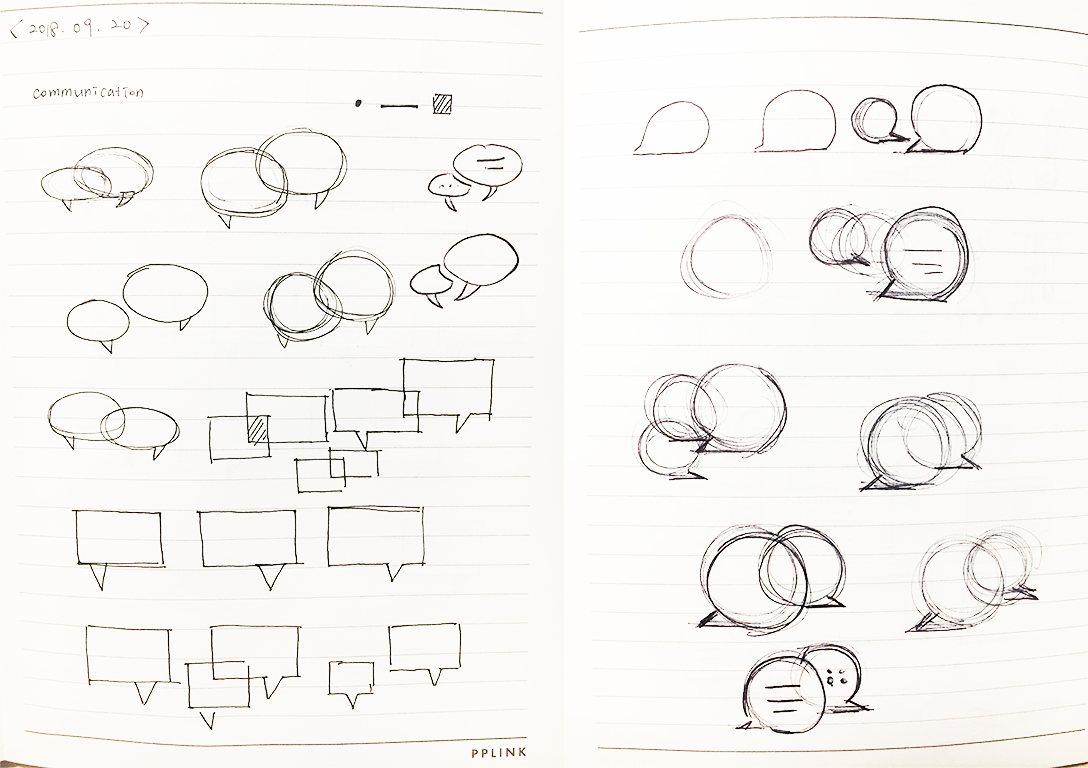 <2018. 09. 20>
communication
PPLINK